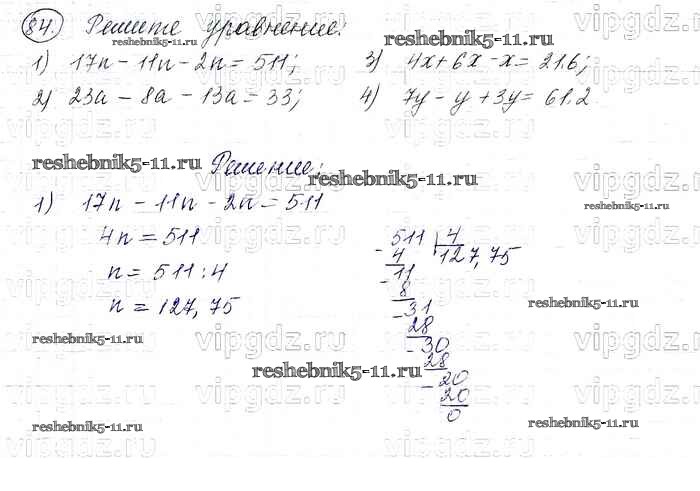 84. Решите уравнение:
1) 17n - 11n - 2n = 511; 3) 4x + 6x - x = 216;
2) 23a - 8a - 13a = 33; 4) 7y - y + 3y = 61.2
Решение:
1) 17n - 11n - 2n = 511
4n = 511
n = 511 : 4
n = 127,75
- 511 | 4
4 127,75
- 11
8
- 31
28
- 30
28
- 20
20
0
vipgdz.ru
reshebnik5-11.ru